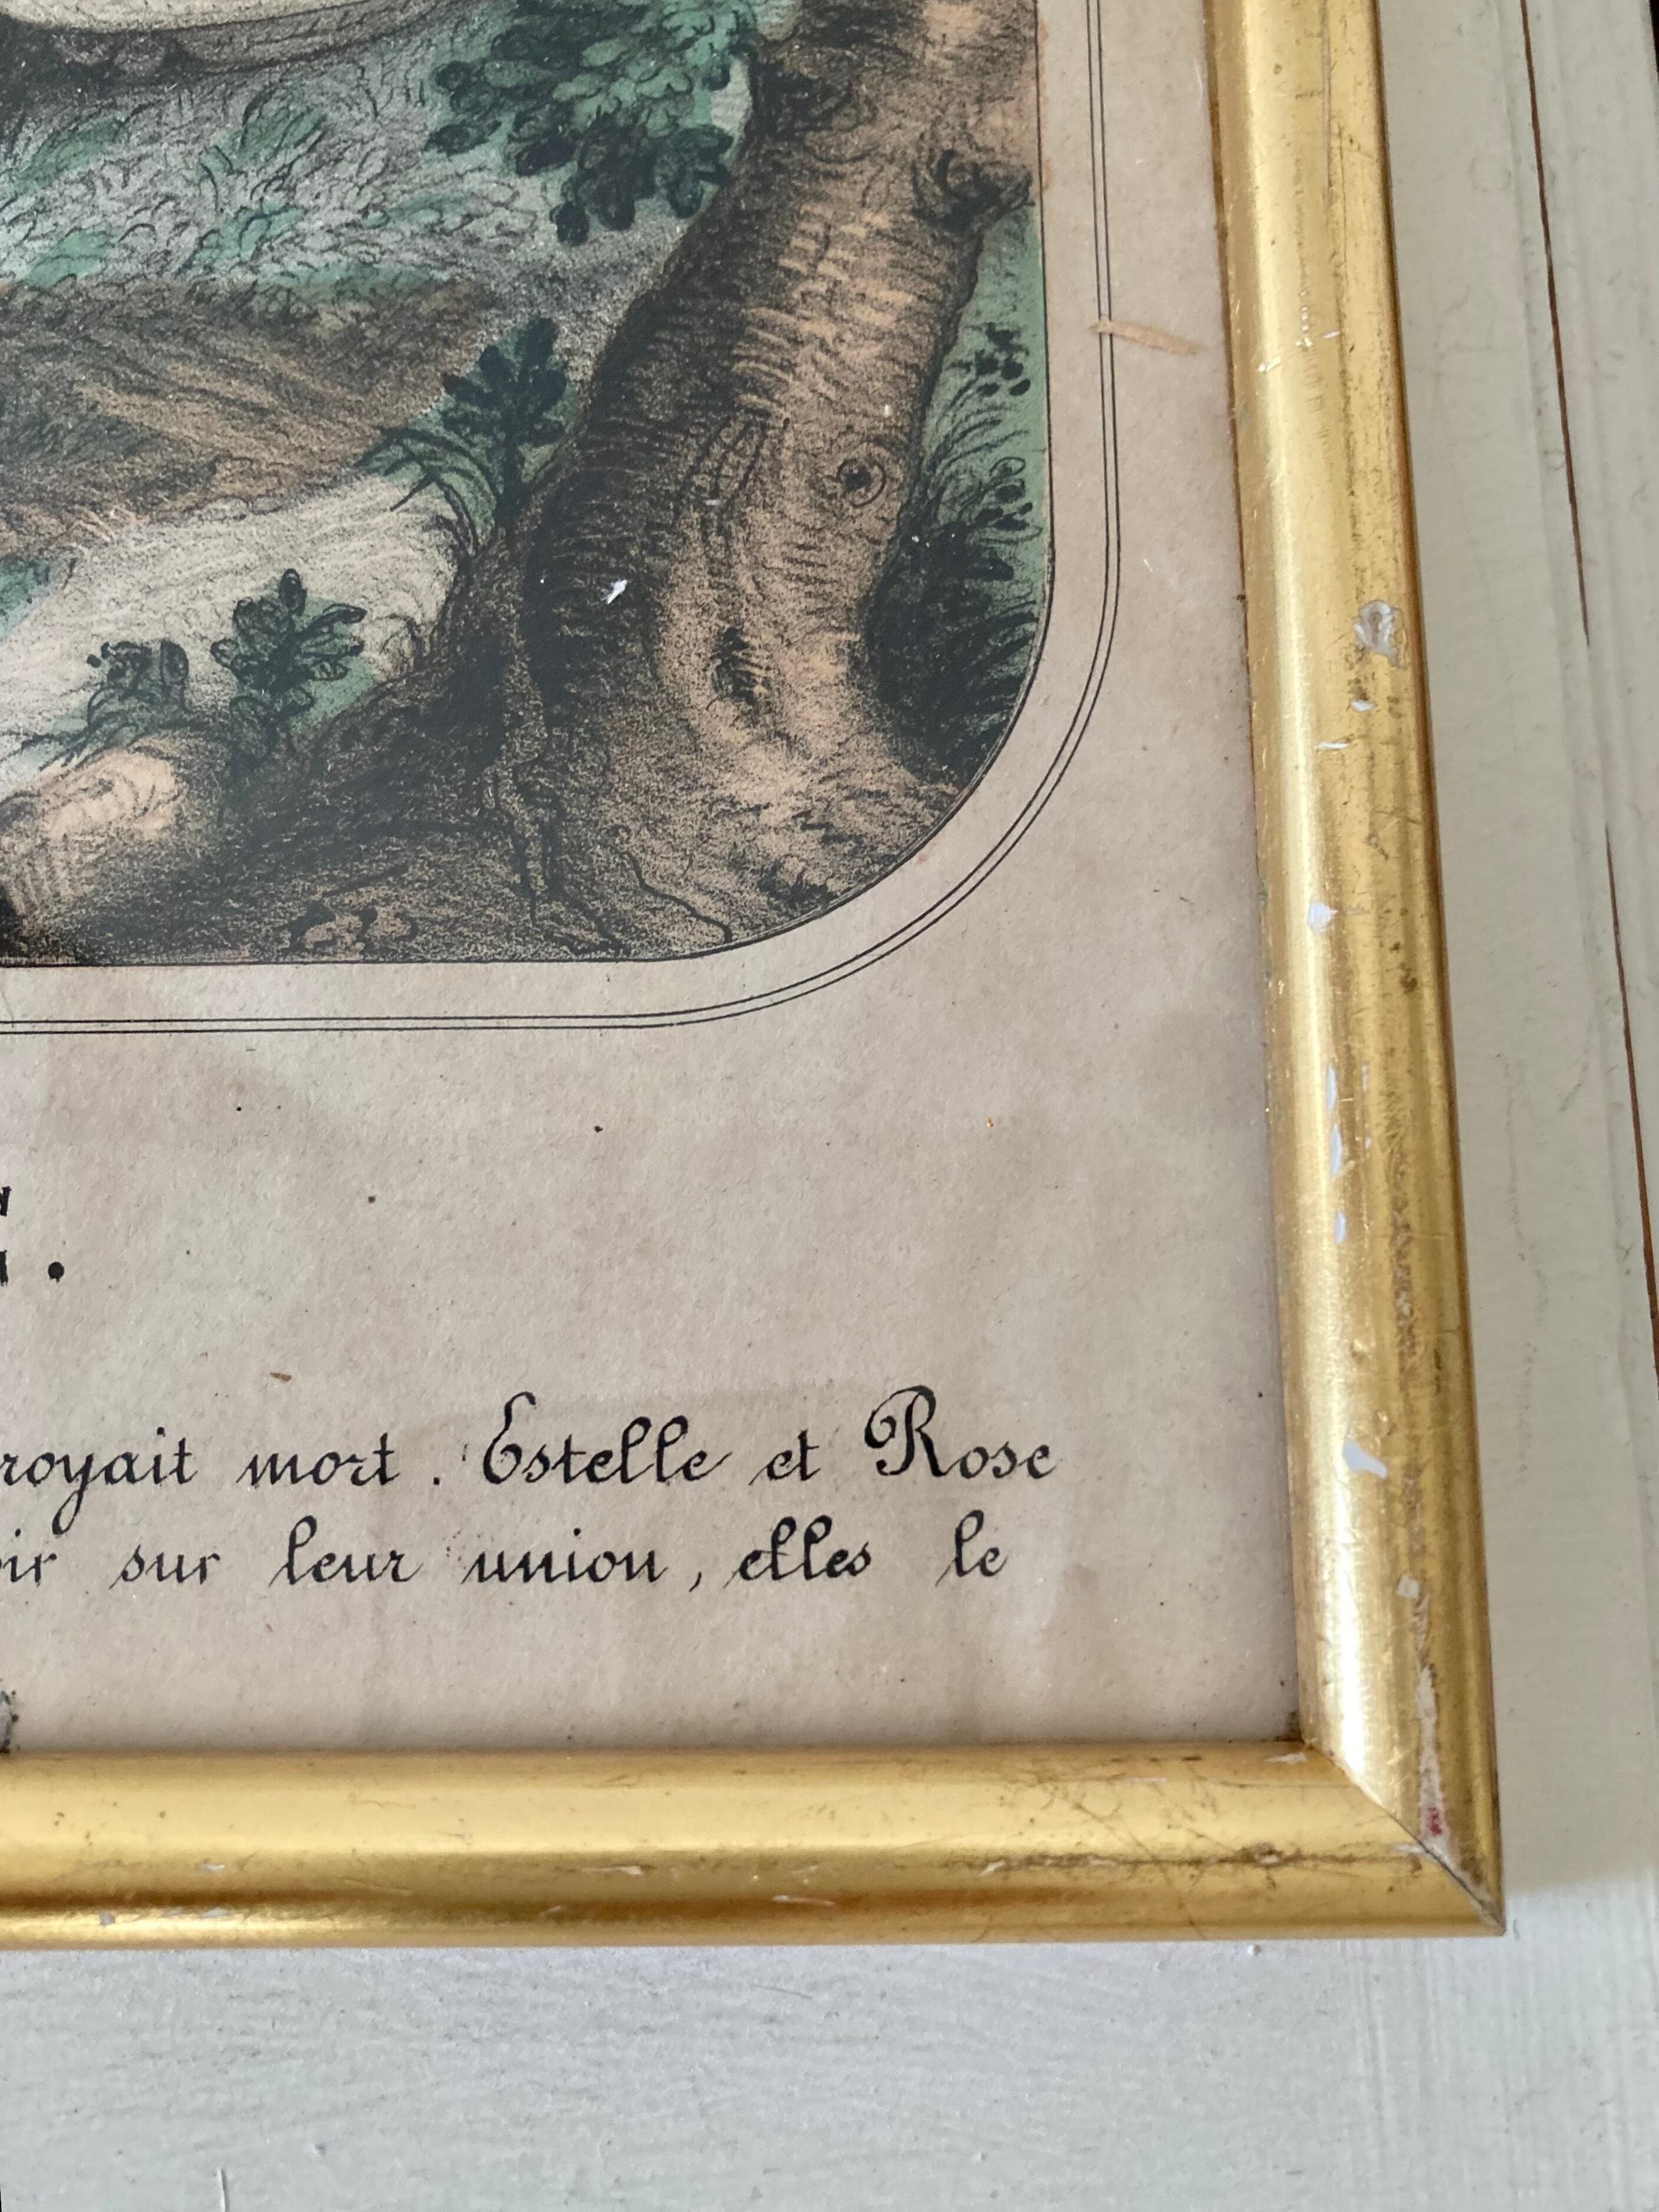 mort. Estelle et Rose
sur leur union, elles le